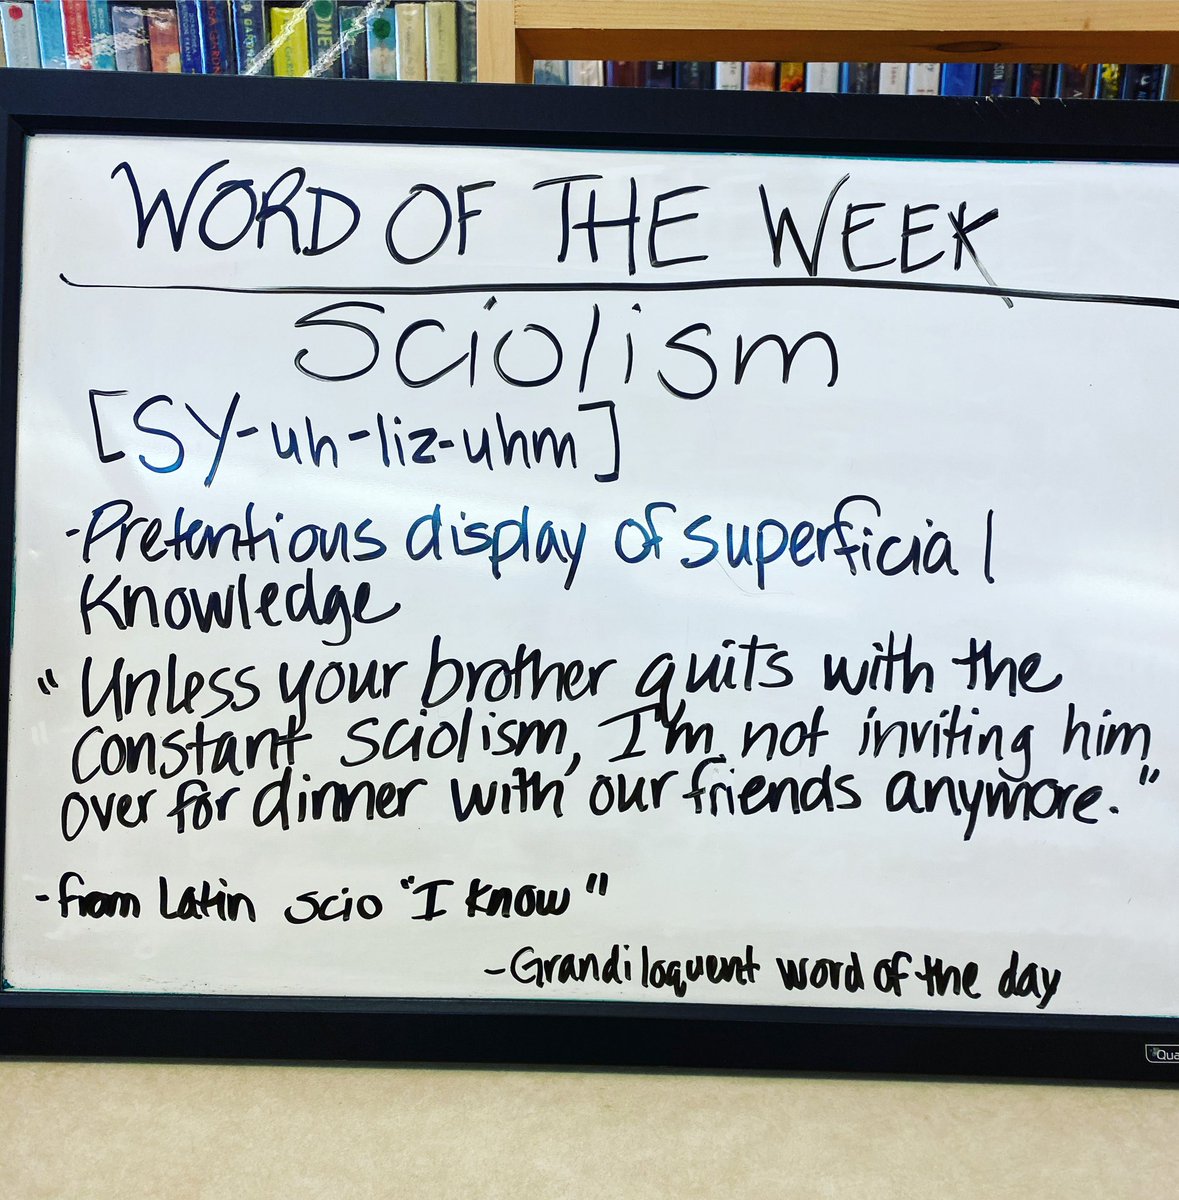 WORD OF THE WEEK
Sciolism
[SY-uh-liz-uhm]
-Pretentious display of superficial
Knowledge
"Unless your brother quits with the
constant sciolism, I'm not inviting him
over for dinner with our friends anymore."
-from Latin scio "I know"
-Grandiloquent word of the day